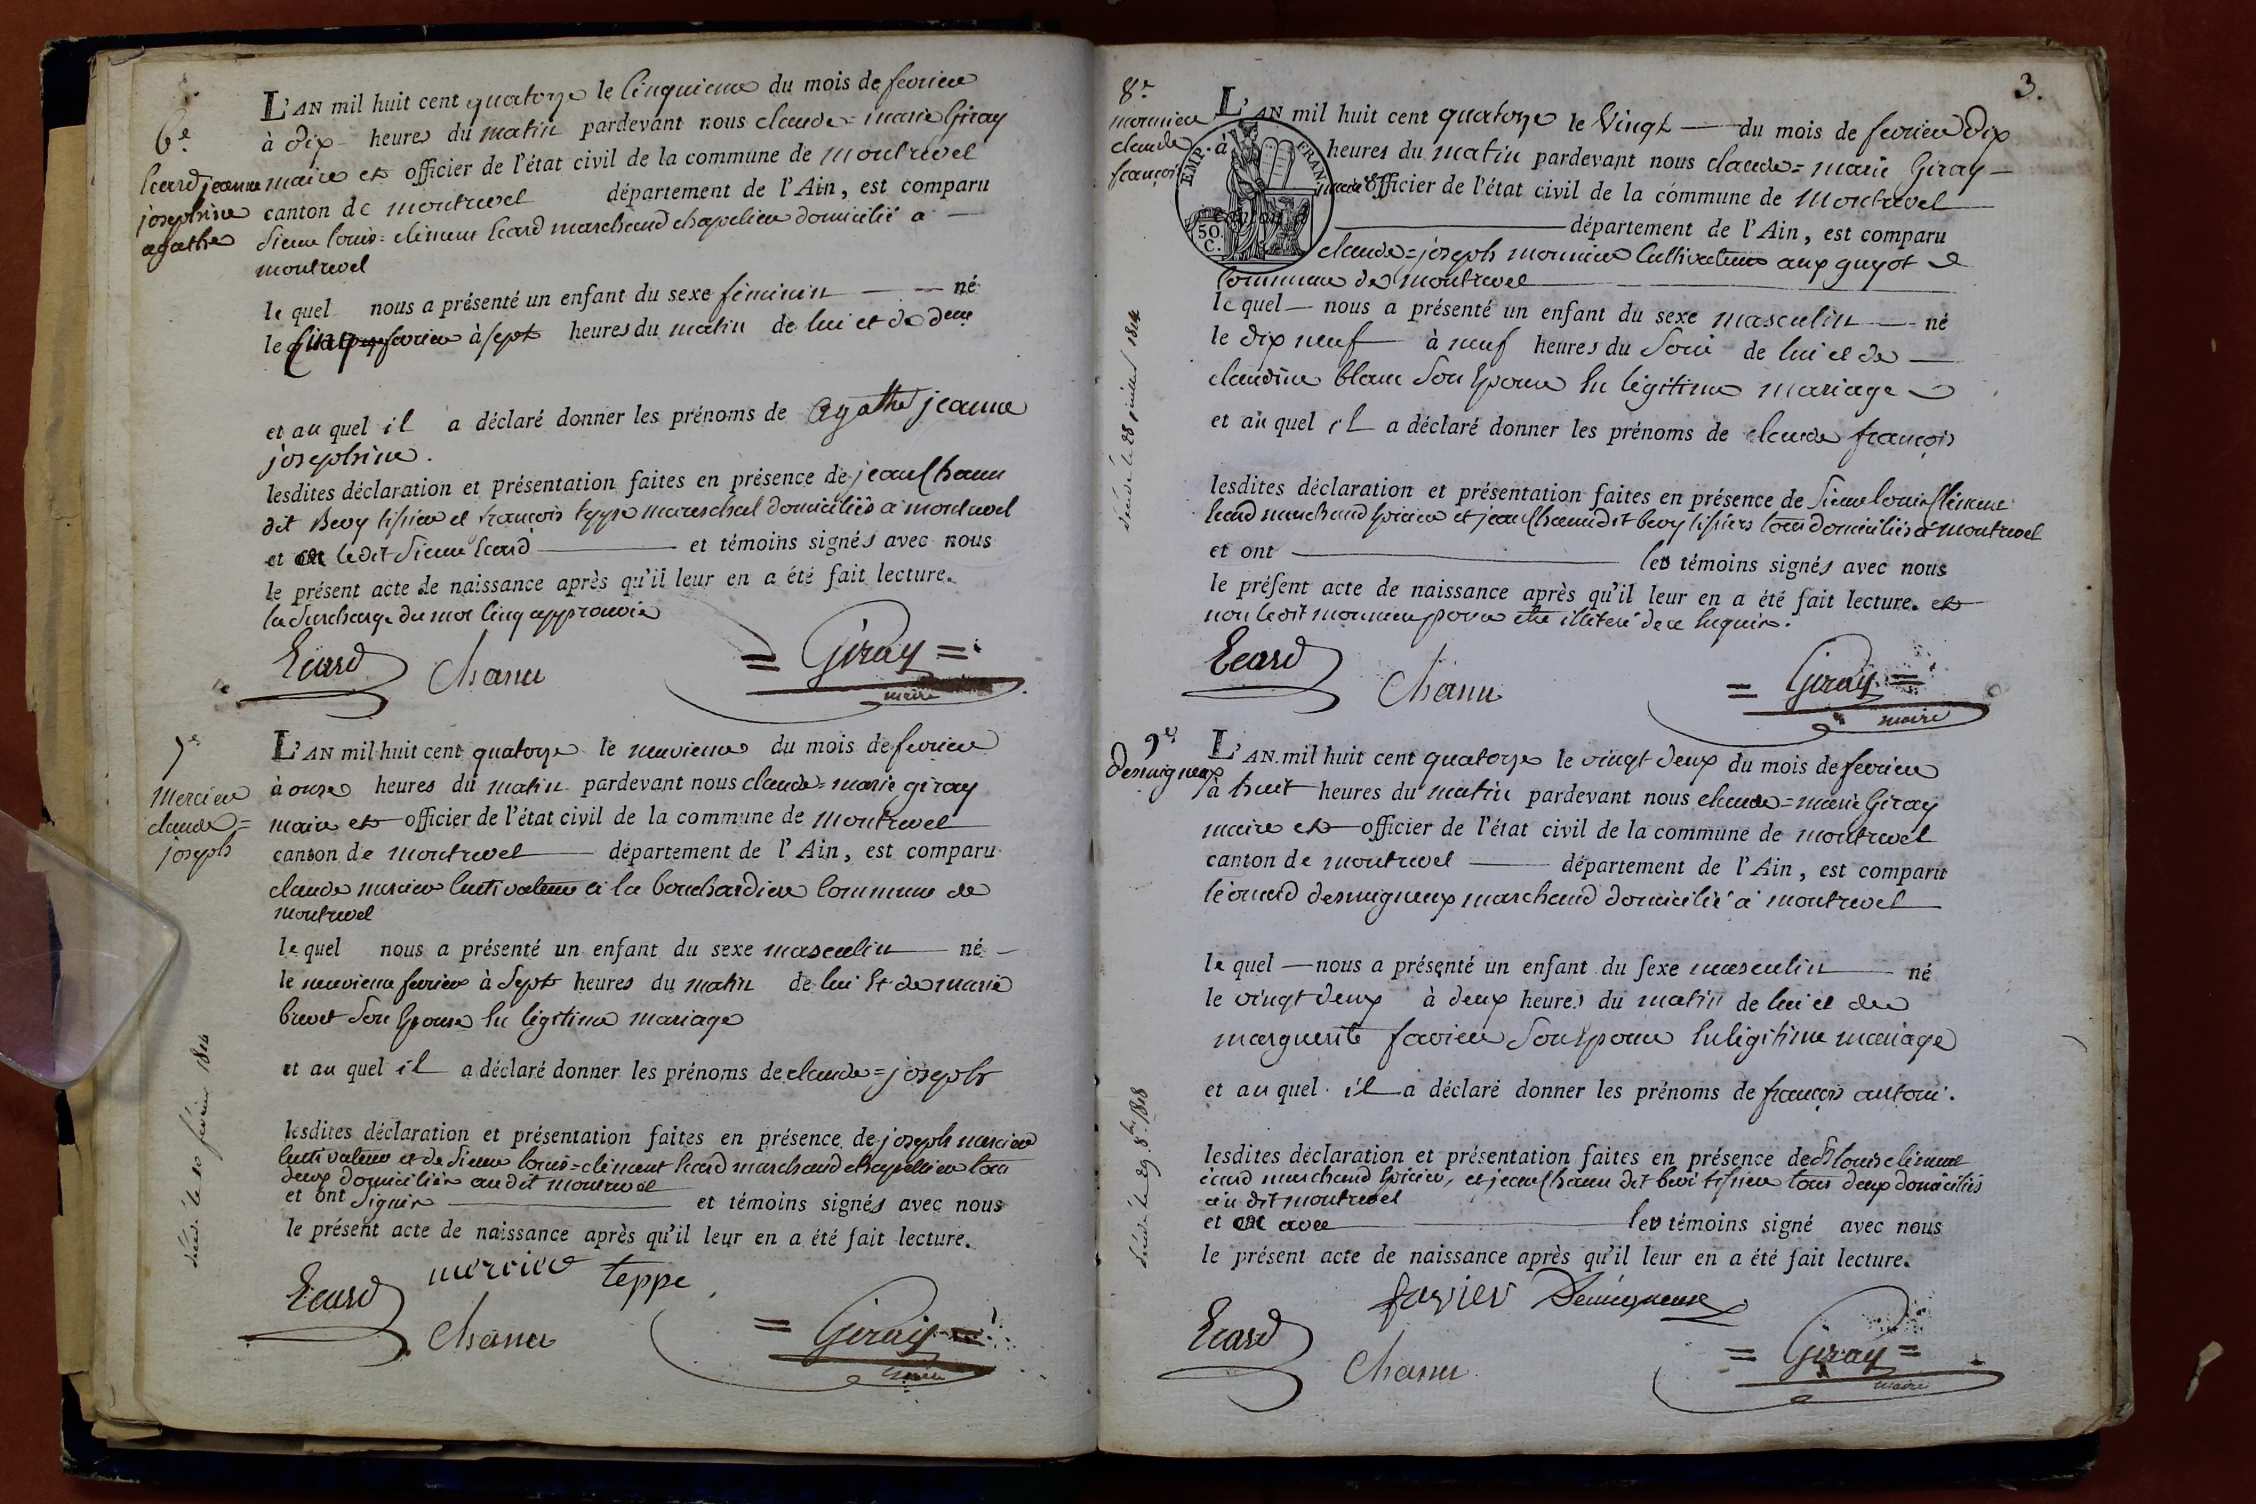 6e.
Ecard jeanne
josephine
agathe
L'AN mil huit cent quatorze le Cinquieme du mois de fevrier
à dix heures du matin pardevant nous claude=marie Giray
maire et officier de l'état civil de la commune de montrevel
canton de montrevel département de l'Ain, est comparu
Sieur louis=clement Ecard marchand chapelier domicilié a
montrevel
le quel nous a présenté un enfant du sexe féminin né
le Cinq fevrier à sept heures du matin de lui et de
et au quel il a déclaré donner les prénoms de agathe jeanne
josephine.
lesdites déclaration et présentation faites en présence de jean Chanu
dit Bevy tissier et françois teppe mareschal domiciliés a montrevel
et ont ledit Sieur Ecard et témoins signés avec nous
le présent acte de naissance après qu'il leur en a été fait lecture.
la Surcharge du mot Cinq approuvée
Ecard Chanu = Giray =
maire
7e
Mercier
claude=
joseph
décédé le 10 fevrier 1814
L'AN mil huit cent quatorze le neuvieme du mois de fevrier
à onze heures du matin pardevant nous claude=marie giray
maire et officier de l'état civil de la commune de montrevel
canton de montrevel département de l'Ain, est comparu
claude mercier Cultivateur a la bouchardiere Commune de
montrevel
le quel nous a présenté un enfant du sexe masculin né
le neuvieme fevrier à Sept heures du matin de lui Et de marie
brevet Son Epouse En légitime mariage
et au quel il a déclaré donner les prénoms de claude=joseph
lesdites déclaration et présentation faites en présence de joseph mercier
Cultivateur et de Sieur louis=clément Ecard marchand chapellier tous
deux domiciliés audit montrevel
et ont Signer et témoins signés avec nous
le présent acte de naissance après qu'il leur en a été fait lecture.
Ecard mercier teppe
Chanu = Giray =
maire
3.
8e
monnier
claude
françois
décédé le 28 juillet 1814
L'AN mil huit cent quatorze le Vingt du mois de fevrier dix
à heures du matin pardevant nous claude=marie Giray
maire officier de l'état civil de la commune de Montrevel
canton d département de l'Ain, est comparu
EMP. FRAN.
50.
C.
claude=joseph monnier Cultivateur aux guyot
Commune de montrevel
le quel nous a présenté un enfant du sexe masculin né
le dix neuf à neuf heures du Soir de lui et de
claudine blanc Son Epouse En légitime mariage
et au quel il a déclaré donner les prénoms de claude françois
lesdites déclaration et présentation faites en présence de Sieur louis Clément
Ecard marchand Epicier et jean Chanu dit bevy tissiers tous domiciliés a montrevel
et ont les témoins signés avec nous
le présent acte de naissance après qu'il leur en a été fait lecture. et
non ledit monnier pour etre illiteré de ce Enquis.
Ecard Chanu = Giray =
maire
9e
Desmigneux
décédé le 29. 8bre 1818
L'AN mil huit cent quatorze le vingt deux du mois de fevrier
à huit heures du matin pardevant nous claude=marie Giray
maire et officier de l'état civil de la commune de montrevel
canton de montrevel département de l'Ain, est comparu
léonard desmigneux marchand domicilié a montrevel
le quel nous a présenté un enfant du sexe masculin né
le vingt deux à deux heures du matin de lui et de
marguerite favier Son Epouse En légitime mariage
et au quel il a déclaré donner les prénoms de françois antoine.
lesdites déclaration et présentation faites en présence de louis clement
écard marchand Epicier, et jean Chanu dit bevi tissier tous deux domiciliés
au dit montrevel
et ont avec les témoins signé avec nous
le présent acte de naissance après qu'il leur en a été fait lecture.
favier Desmigneux
Ecard Chanu = Giray =
maire